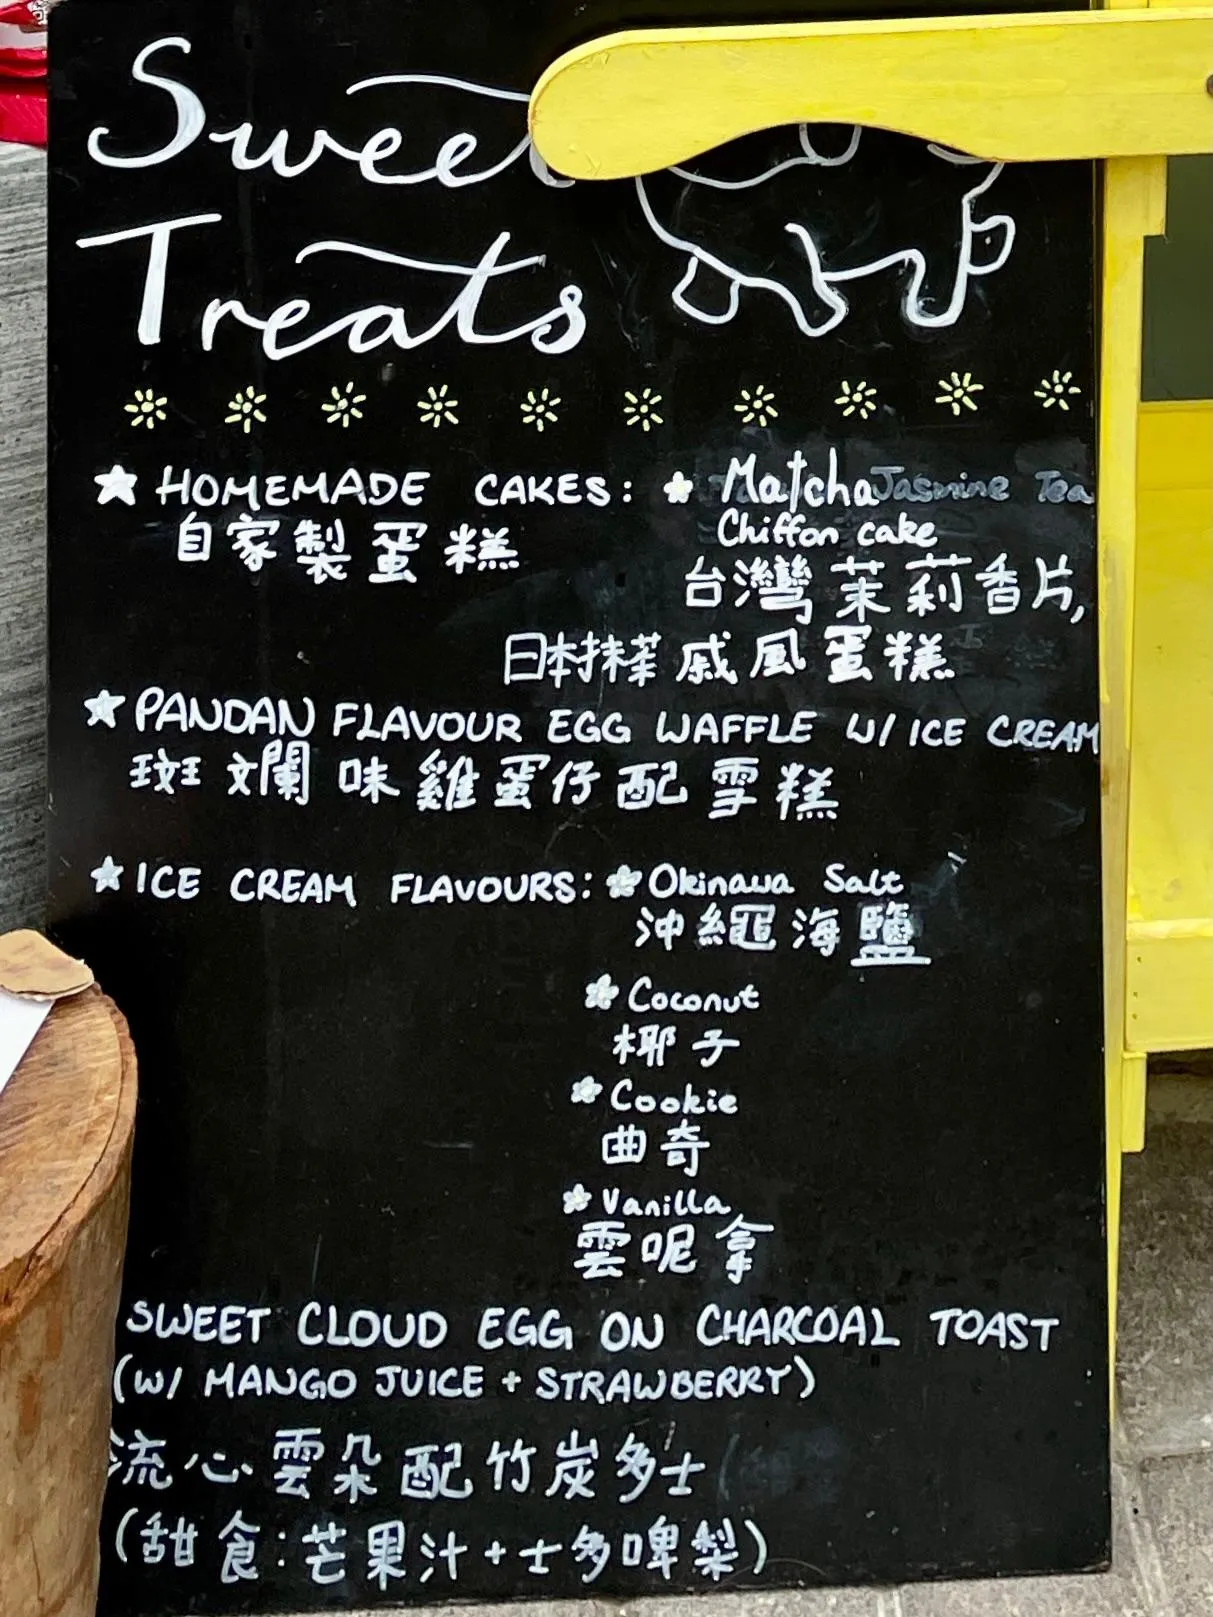 Sweet
Treats
HOMEMADE CAKES: Matcha Jasmine Tea
自家製蛋糕 Chiffon cake
台灣茉莉香片,
日本抹茶戚風蛋糕
PANDAN FLAVOUR EGG WAFFLE W/ ICE CREAM
斑斕味雞蛋仔配雪糕
ICE CREAM FLAVOURS: Okinawa Salt
沖繩海鹽
Coconut
椰子
Cookie
曲奇
Vanilla
雲呢拿
SWEET CLOUD EGG ON CHARCOAL TOAST
(W/ MANGO JUICE + STRAWBERRY)
流心雲朵配竹炭多士
(甜食:芒果汁+士多啤梨)